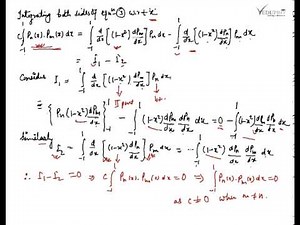 Integrating both sides of equⁿ ③ w.r.t 'x'
c∫₋₁¹ Pₙ(x).Pₘ(x) dx = ∫₋₁¹ d/dx [(1-x²) dPₘ/dx] Pₙ dx - ∫₋₁¹ d/dx [(1-x²) dPₙ/dx] Pₘ dx
= I₁ - I₂
Consider I₁ = ∫₋₁¹ d/dx [(1-x²) dPₘ/dx] Pₙ dx,
= {Pₙ (1-x²) dPₘ/dx}₋₁¹ - ∫₋₁¹ (1-x²) dPₘ/dx dPₙ/dx dx = 0 - ∫₋₁¹ (1-x²) dPₘ/dx dPₙ/dx dx
Similarly I₂ = ∫₋₁¹ d/dx [(1-x²) dPₙ/dx] Pₘ dx = - ∫₋₁¹ (1-x²) dPₙ/dx dPₘ/dx dx
∴ I₁-I₂ = 0 ⇒ c∫₋₁¹ Pₙ(x).Pₘ(x) dx = 0 ⇒ ∫₋₁¹ Pₙ(x).Pₘ(x) dx = 0
as c ≠ 0 when m ≠ n.